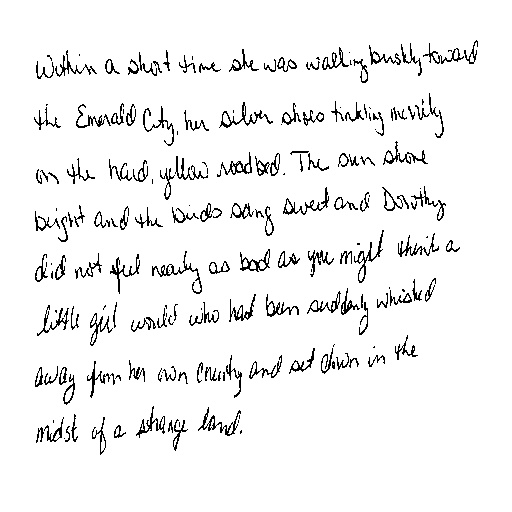 Within a short time she was walking briskly toward
the Emerald City, her silver shoes tinkling merrily
on the hard, yellow roadbed. The sun shone
bright and the birds sang sweet and Dorothy
did not feel nearly as bad as you might think a
little girl would who had been suddenly whisked
away from her own country and set down in the
midst of a strange land.